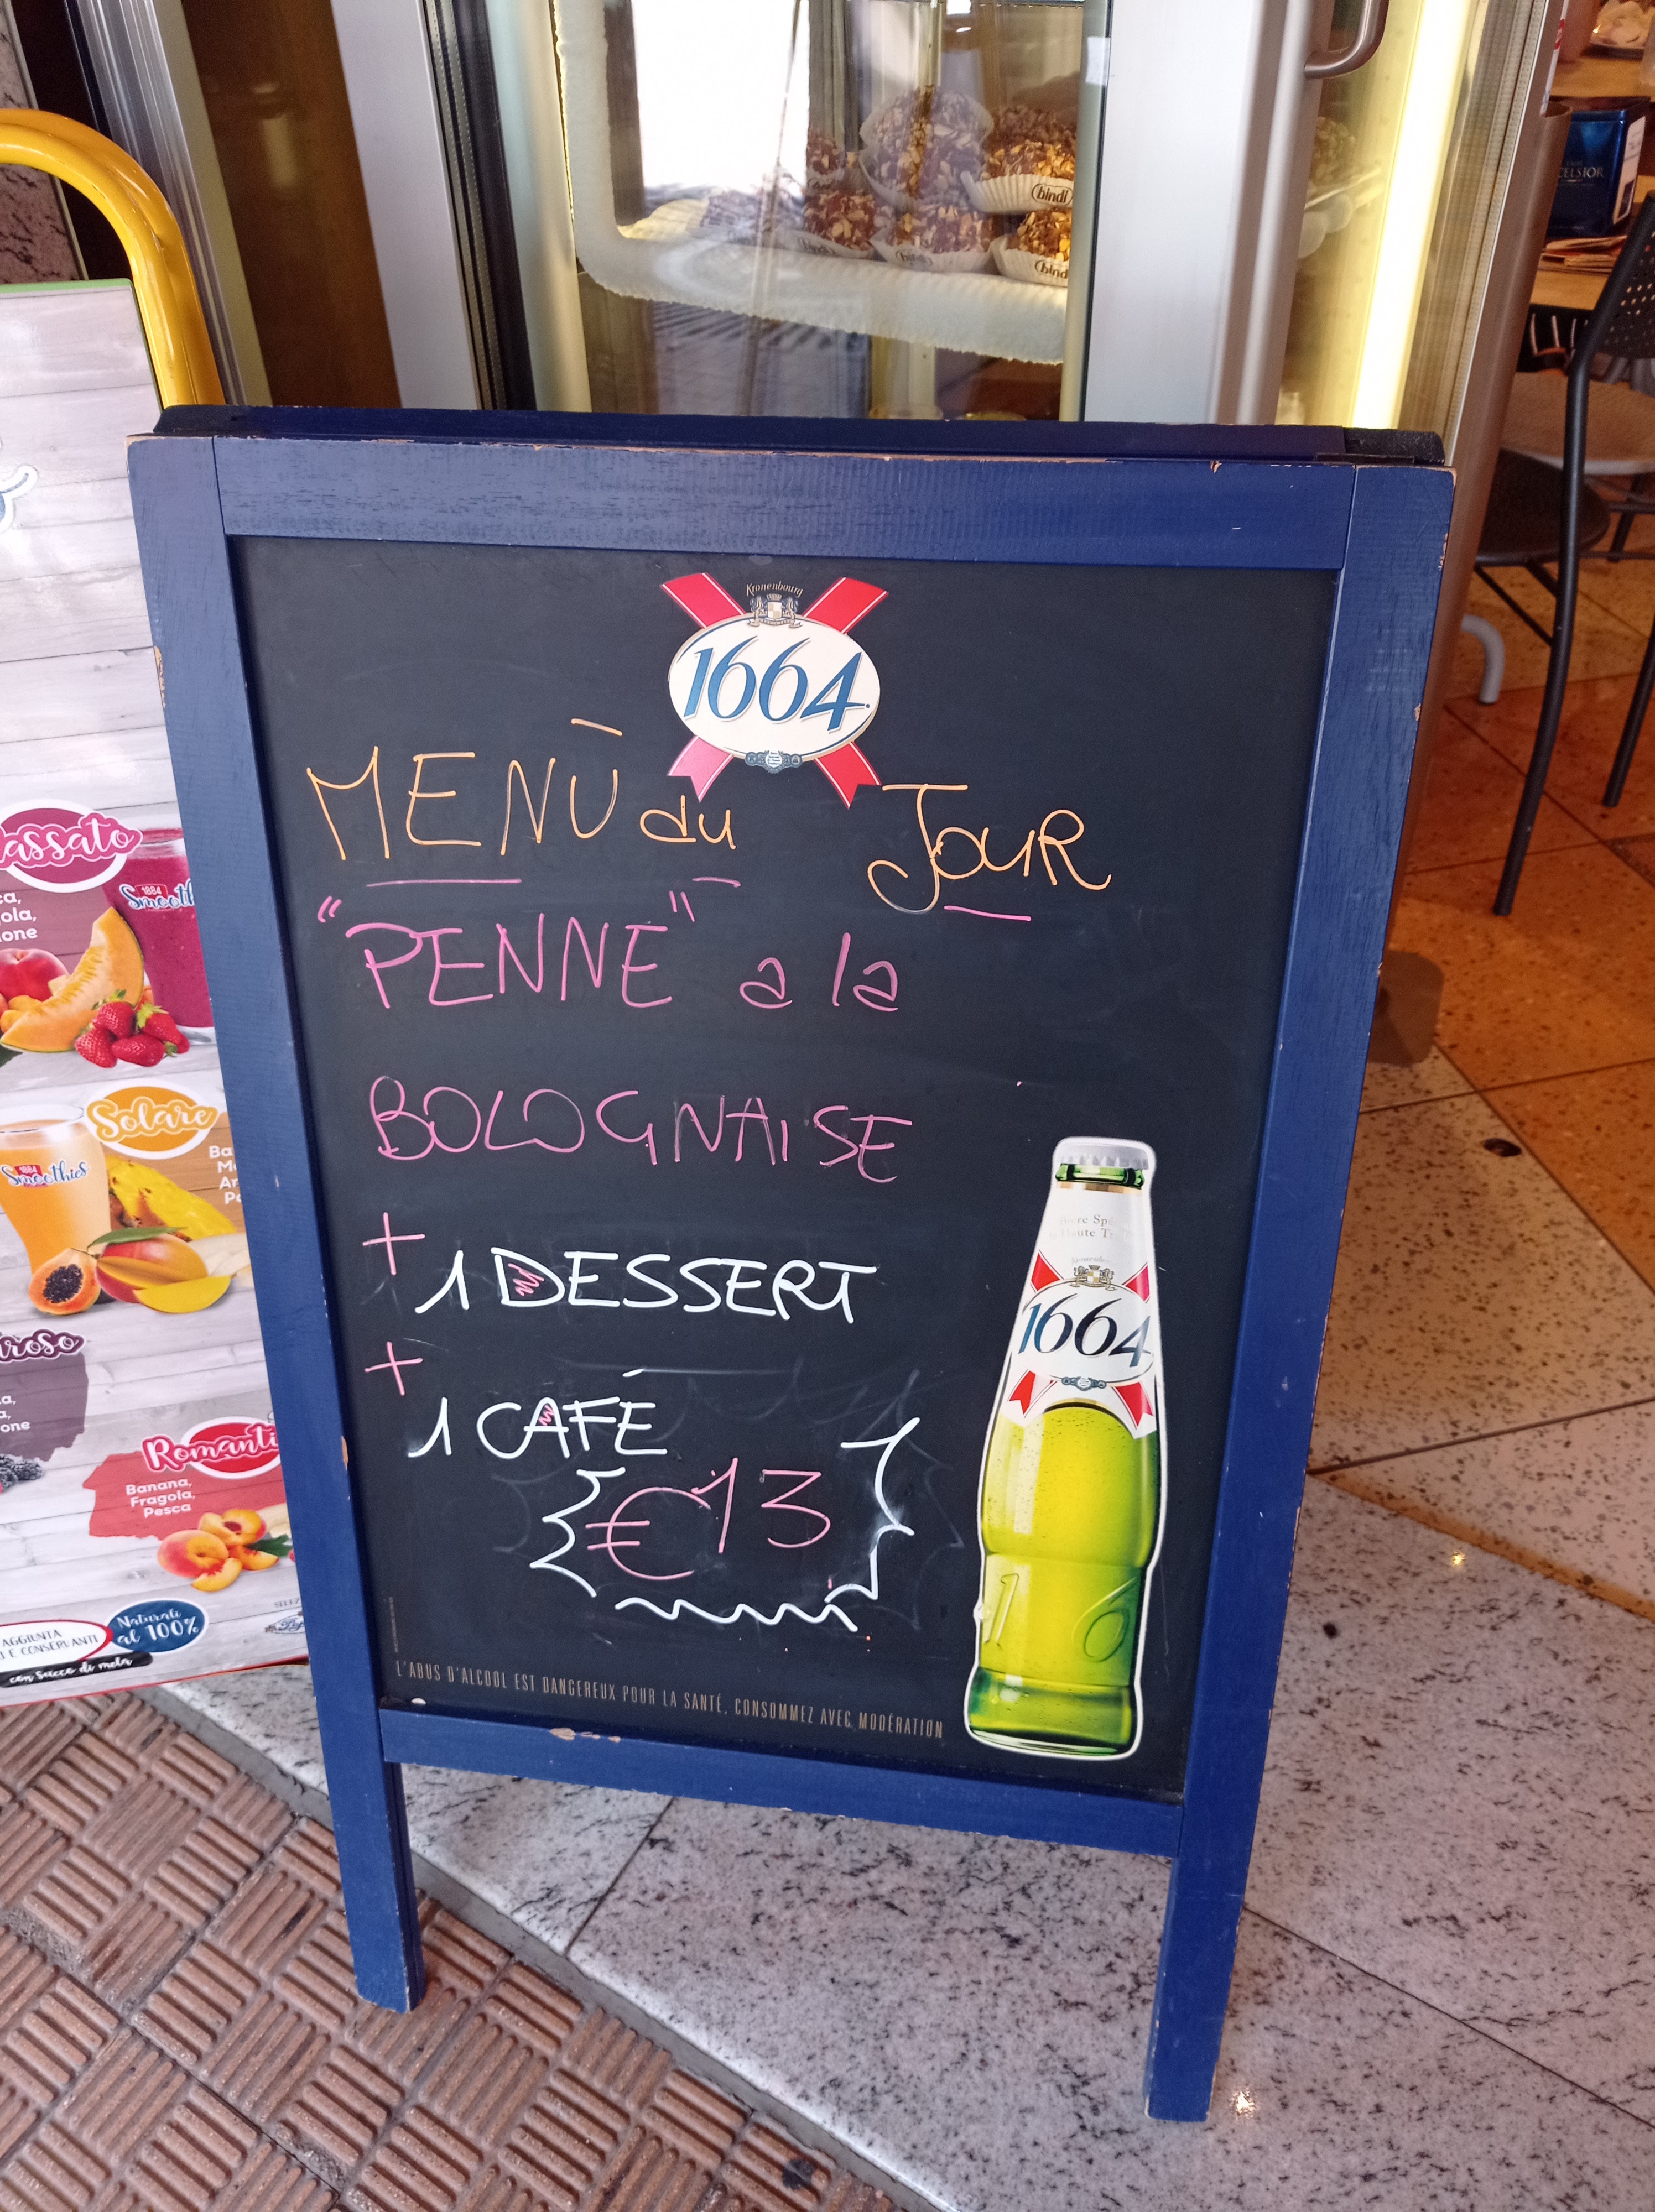 bindi
bindi
bindi
bind
CELSIOR
Kronenbourg
1664
MENÙ du JOUR
"PENNE" a la
BOLOGNAISE
+
1 DESSERT
+
1 CAFÉ
€13
L'ABUS D'ALCOOL EST DANGEREUX POUR LA SANTÉ, CONSOMMEZ AVEC MODÉRATION
Bière Spé
Haute T
1664
16
assato
ca,
ola,
one
1884
Smooth
Solare
1884
Smoothies
Ba
Ma
Ar
Pa
roso
a,
a,
one
Romanti
Banana,
Fragola,
Pesca
AGGIUNTA
I E CONSERVANTI
con succo di mela
Naturali
al 100%